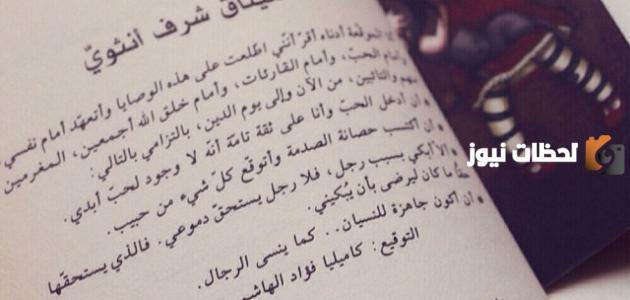 ميثاق شرف أنثويّ
الموقّعة أدناه أقرّ أنّني اطّلعت على هذه الوصايا وأتعهّد أمام نفسي
وأمام الحبّ، وأمام القارئات، وأمام خلق الله أجمعين، المغرمين
منهم والتائبين، من الآن وإلى يوم الدين، بالتزامي بالتالي:
• أن أدخل الحبّ وأنا على ثقة تامّة أنّه لا وجود لحبّ أبدي.
• أن أكتسب حصانة الصدمة وأتوقّع كلّ شيء من حبيب.
• ألا أبكي بسبب رجل، فلا رجل يستحقّ دموعي. فالذي يستحقّها
حقاً ما كان ليرضى بأن يُبكيني.
• أن أكون جاهزة للنسيان.. كما ينسى الرجال.
التوقيع: كاميليا فؤاد الهاشم
لحظات نيوز